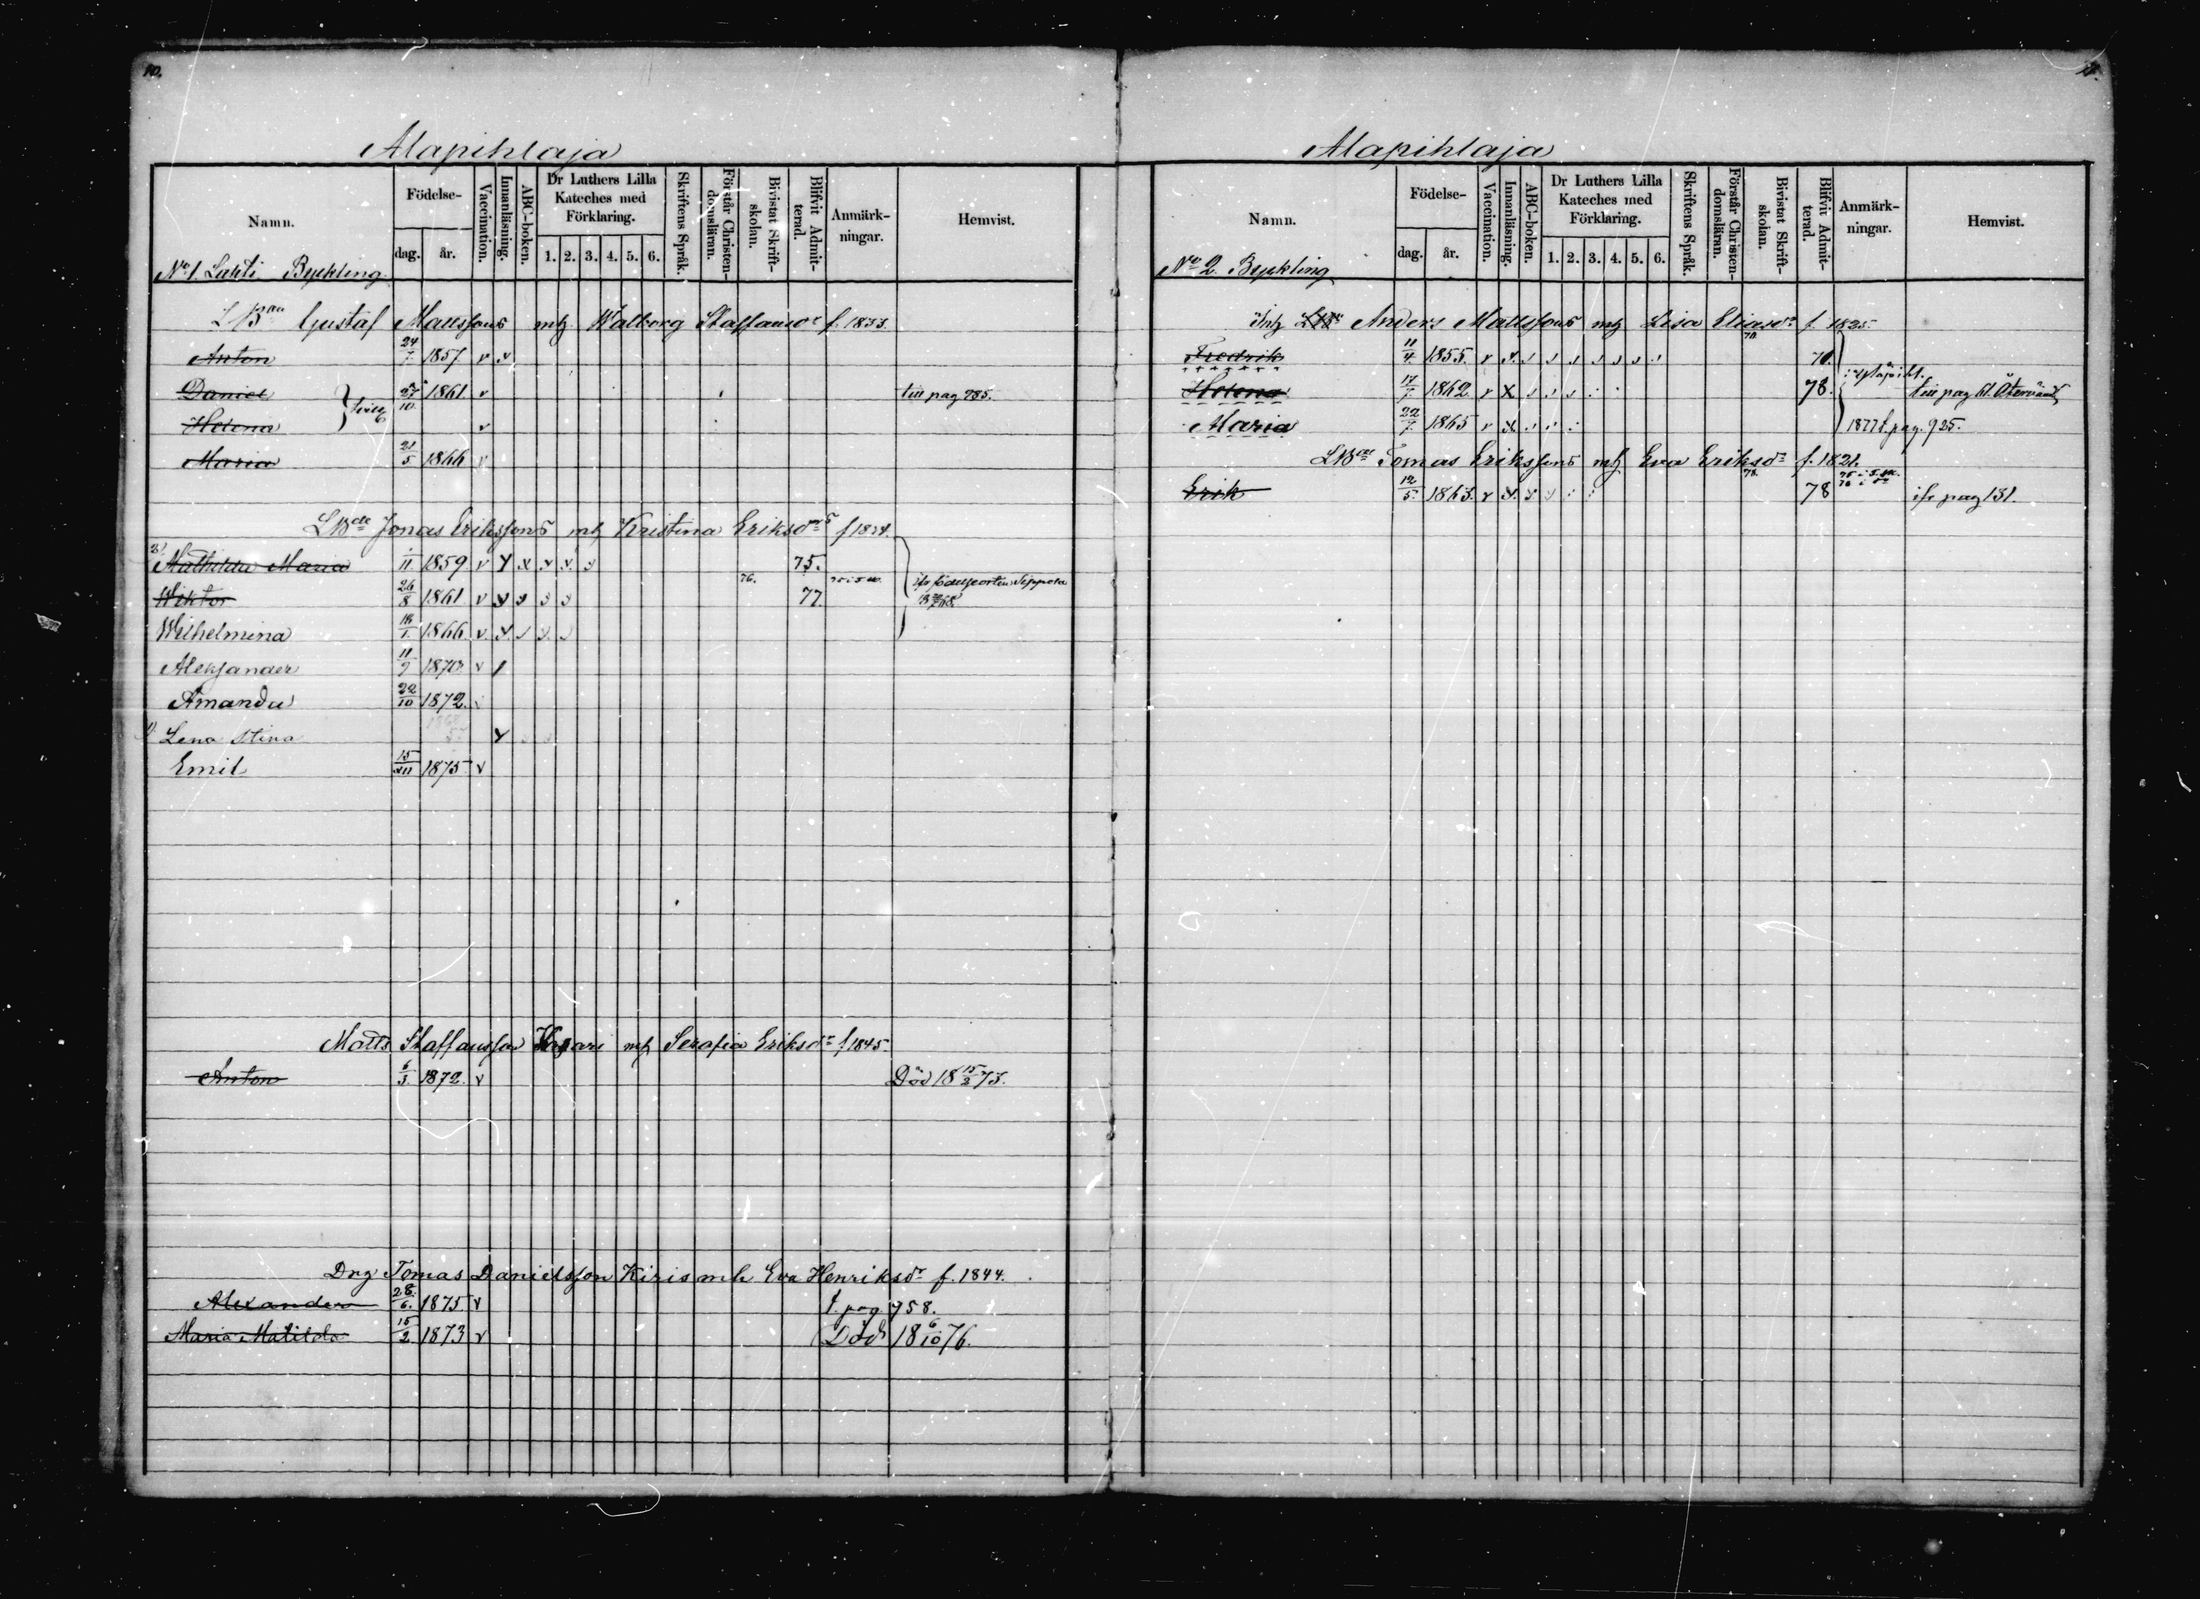 10.
Alapihlaja
Namn.
Födelse-
dag. år.
Vaccination.
Innanläsning.
ABC-boken.
Dr Luthers Lilla Kateches med Förklaring.
1. 2. 3. 4. 5. 6.
Skriftens Språk.
Förstår Christendomsläran.
Bivistat Skriftskolan.
Blifvit Admitterad.
Anmärkningar.
Hemvist.
No 1. Lahti Byckling
Gustaf Mattssons mh Walborg Staffansdr f. 1833.
Anton 24/7 1857 v x
Daniel 27/10 1861 v till pag 785.
Helena v
Maria 21/5 1866 v
Jonas Erikssons mh Kristina Eriksdrs f 1824.
Mathilda Maria 11 1859 v x x x x x 75.
Wiktor 26/8 1861 v x x x x 76. 77.
Wilhelmina 18/1 1866 v x
Alexander 11/9 1870 v
Amanda 22/10 1872
Lena Stina x
Emil 15/XII 1875 v
Matts Staffansson mh Serafia Eriksdr f. 1845.
Anton 6/3 1872. v Död 18 15/2 73.
Drg Tomas Danielsson Kiris mh Eva Henriksdr f. 1844.
Alexander 28/6 1875 v t. pag. 758.
Maria Matilda 15/2 1873 v Död 18 6/10 76.
11.
Alapihlaja
Namn.
Födelse-
dag. år.
Vaccination.
Innanläsning.
ABC-boken.
Dr Luthers Lilla Kateches med Förklaring.
1. 2. 3. 4. 5. 6.
Skriftens Språk.
Förstår Christendomsläran.
Bivistat Skriftskolan.
Blifvit Admitterad.
Anmärkningar.
Hemvist.
No 2. Byckling
Anders Mattssons mh Lisa Eliasdr f. 1825.
Fredrik 11/4 1855. v x 70. 71.
Helena 17/7 1862 v x 78. till pag
Maria 22/7 1865 v x 1877 t. pag. 925.
Tomas Erikssons mh Eva Eriksdr f. 1821.
Erik 12/5 1863. v x 78. 78 pag 131.